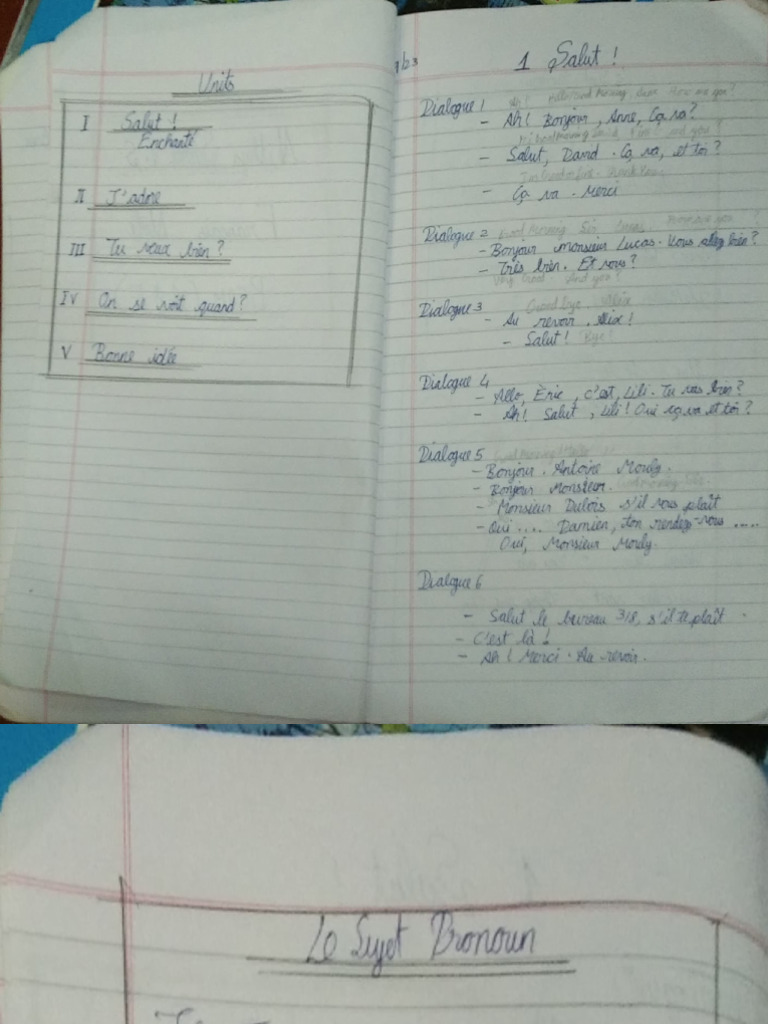 Units
I Salut !
Enchanté
II J'adore
III Tu veux bien ?
IV On se voit quand ?
V Bonne idée
1 Salut !
Dialogue 1
- Ah! Bonjour, Anne, Ça va?
- Salut, David. Ça va, et toi?
- Ça va. Merci
Dialogue 2
- Bonjour monsieur Lucas. Vous allez bien?
- Très bien. Et vous?
Very Good. And you?
Dialogue 3 Good bye, Alix
- Au revoir, Alix!
- Salut! Bye!
Dialogue 4
- Allo, Èric, c'est, Lili. Tu vas bien?
- Ah! Salut, Lili! Oui ça va et toi?
Dialogue 5
- Bonjour. Antoine Mouly.
- Bonjour Monsieur.
- Monsieur Dubois s'il vous plaît
- Oui .... Damien, ton rendez-vous ....
Oui, Monsieur Mouly.
Dialogue 6
- Salut le bureau 318, s'il te plaît.
- C'est là !
- Ah! Merci. Au revoir.
Le Sujet Pronoun